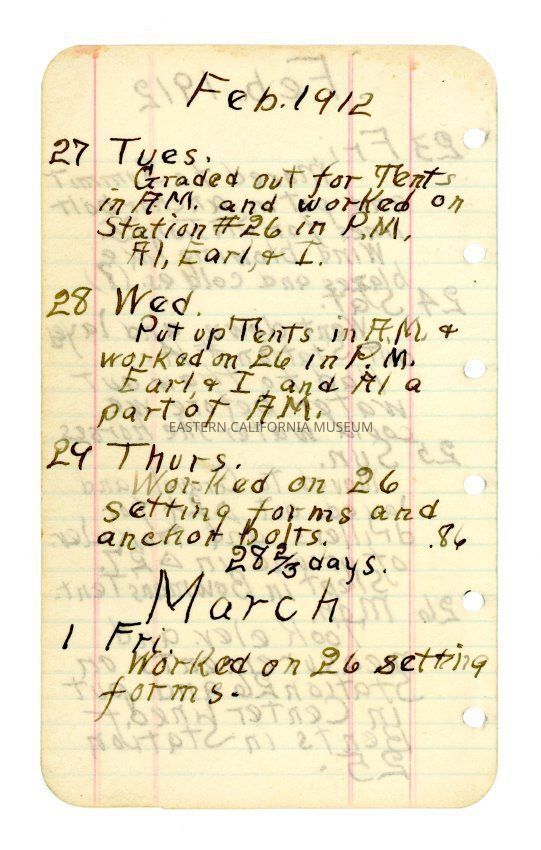 Feb. 1912
27 Tues.
Graded out for Tents
in A.M. and worked on
Station #26 in P.M.
Al, Earl, & I.
28 Wed.
Put up Tents in A.M. &
worked on 26 in P.M.
Earl, & I, and Al a
part of A.M.
EASTERN CALIFORNIA MUSEUM
29 Thurs.
Worked on 26
setting forms and
anchor bolts. .86
28 2/3 days.
March
1 Fri.
Worked on 26 setting
forms.